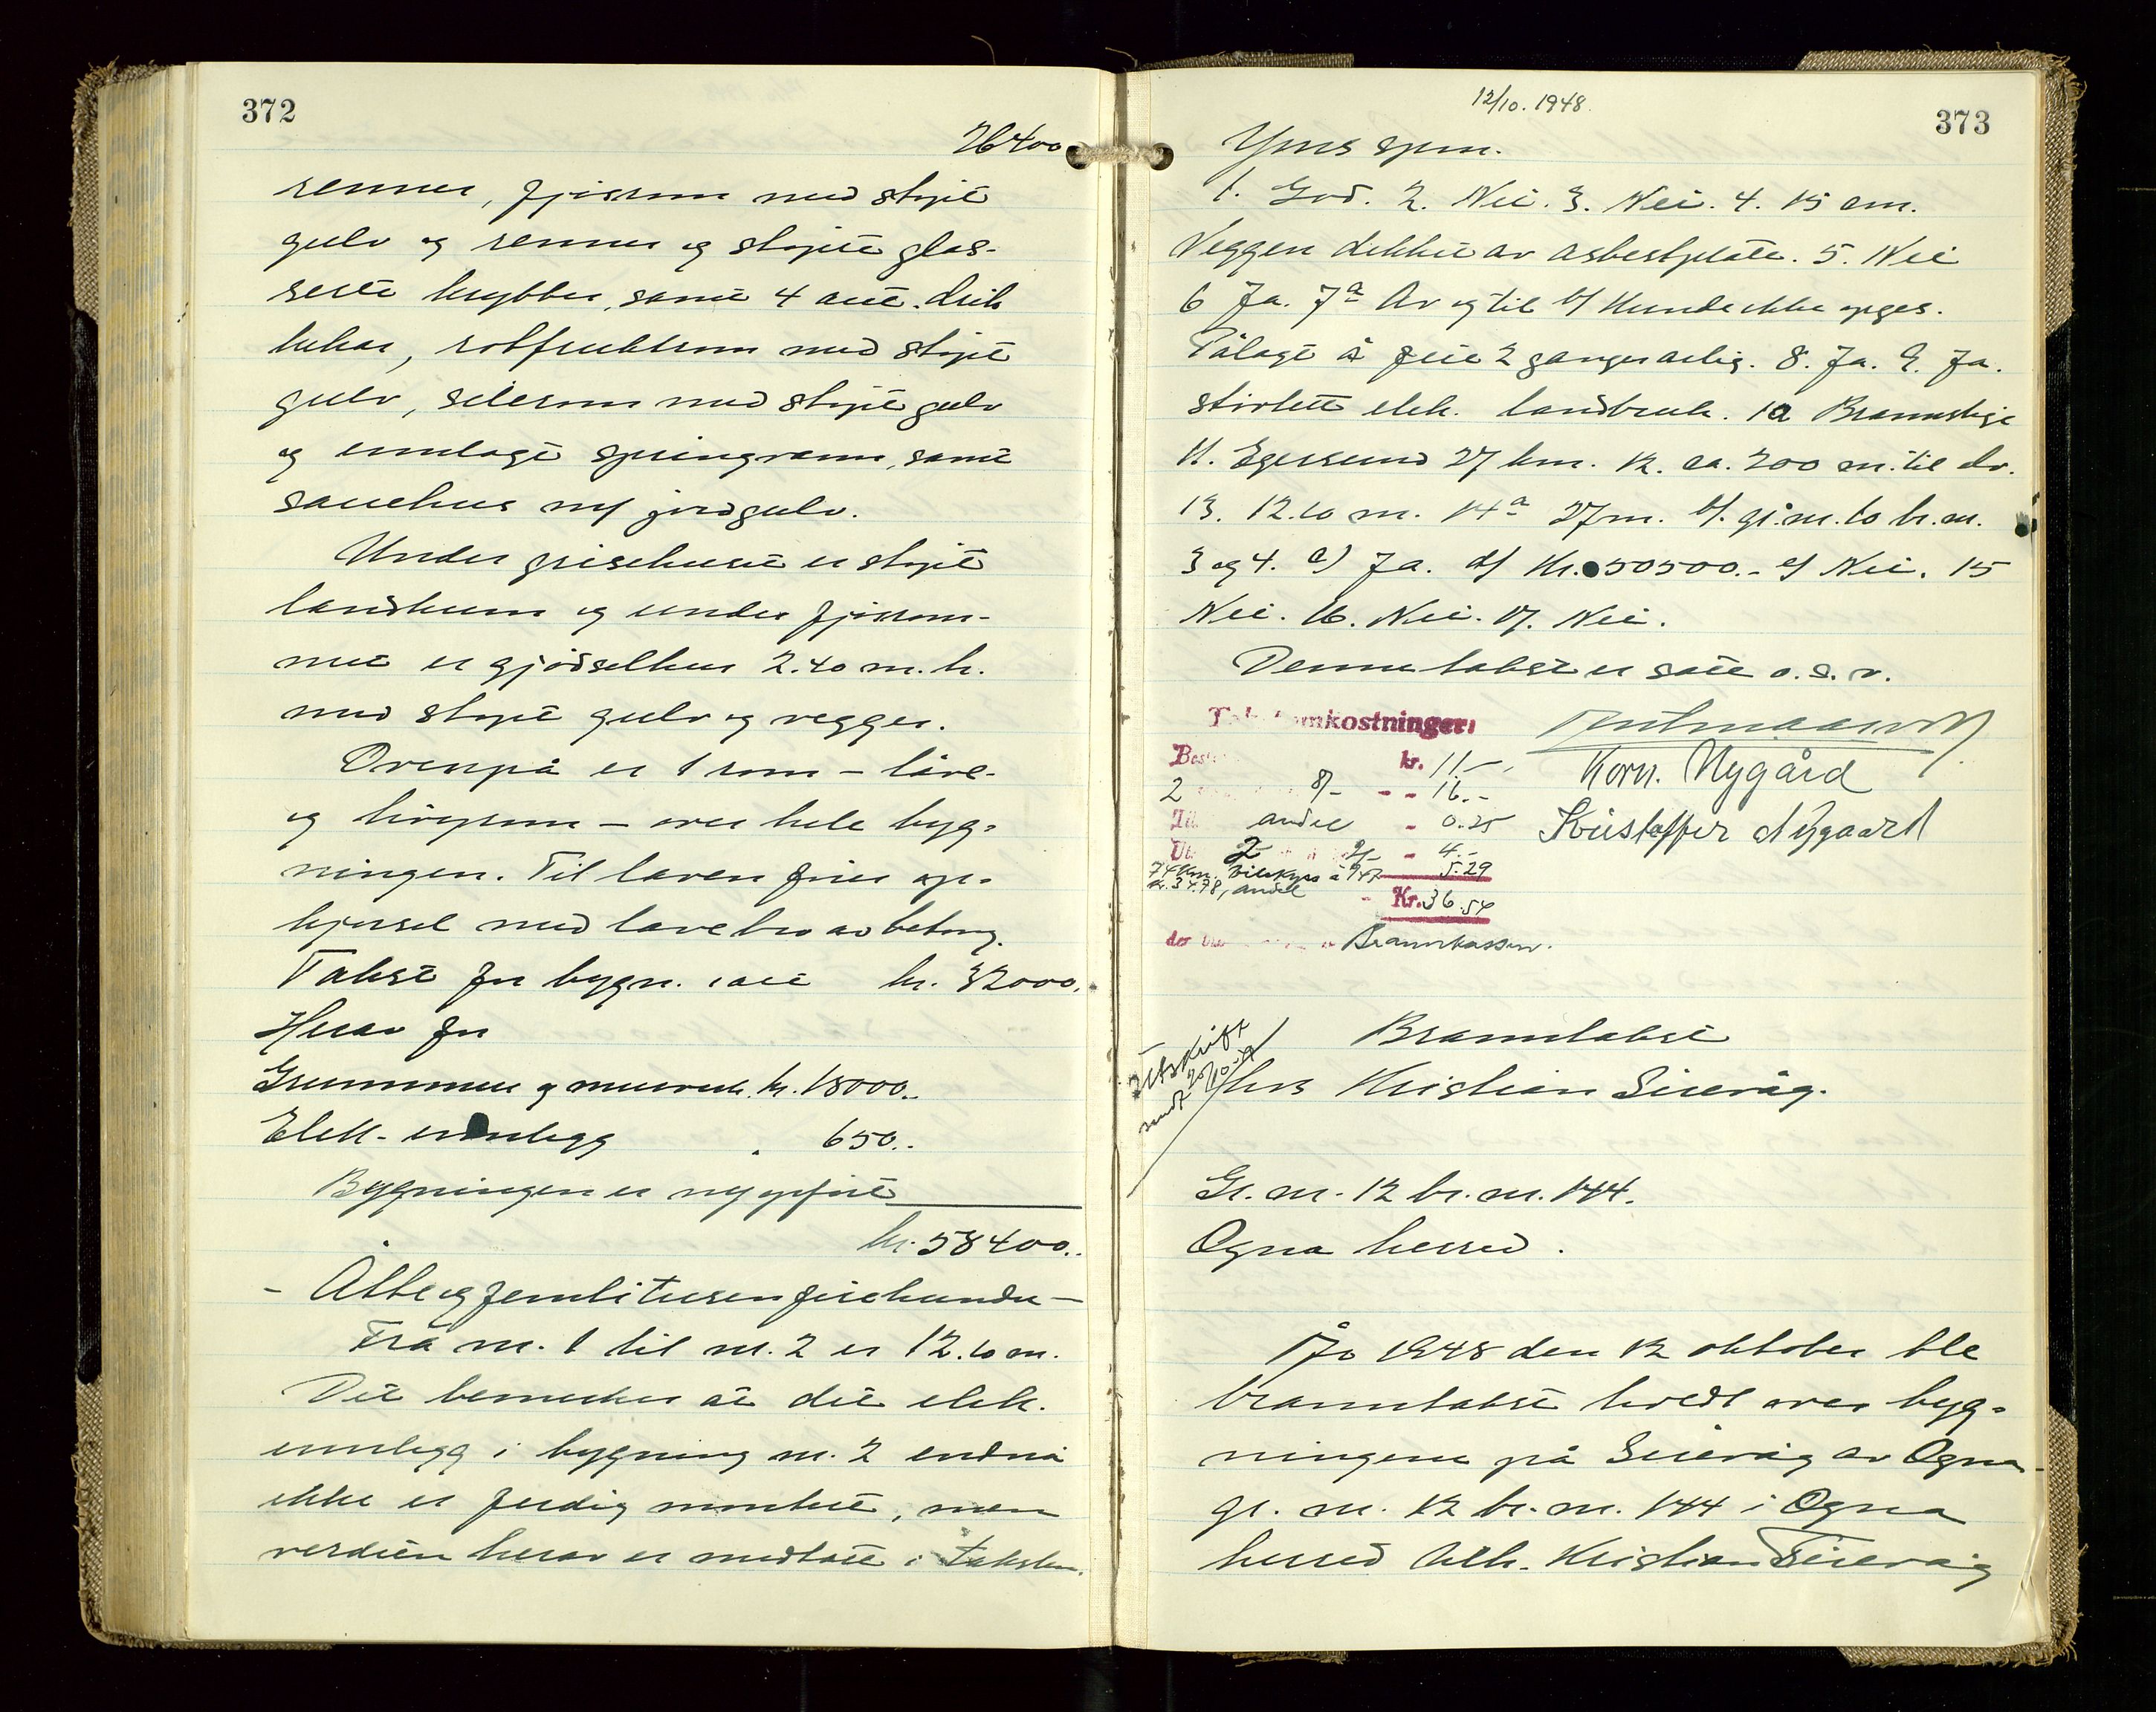 372
26400
renner, fjøsrom med støpt
gulv og renner og støpte glas-
serte krybber, samt 4 aut. drik
kekar, rotfruktrom med støpt
gulv, silorom med støpt gulv
og innlagt springvann, samt
sauehus m/ jordgulv.
Under grisehuset er støpt
landkum og under fjøsrom-
met er gjødselkum 2.40 m. h.
med støpt gulv og vegger.
Ovenpå er 1 rom - låve-
og høyrom - over hele byg-
ningen. Til låven fører op-
kjørsel med låvebro av betong.
Takst for bygn. satt kr. 32000.
Herav for
Grunnmur og murverk kr. 18000..
Elek. innlegg " 650..
Bygningen er nyopført
kr. 58400..
- Åtte og femtitusenfirehundre -
Fra nr. 1 til nr. 2 er 12.10 m.
Det bemerkes at det elek.
innlegg i bygning nr. 2 endnå
ikke er ferdig montert, men
verdien herav er medtatt i taksten.
12/10. 1948.
373
Yms spm.
1. God. 2. Nei. 3. Nei. 4. 15 cm.
Veggen dekket av asbestplate. 5. Nei
6 Ja. 7a Av og til b/ Kunde ikke opges.
Pålagt å feie 2 ganger årlig. 8. Ja. 9. Ja.
stirlett elek. landbruk. 10 Brannstige
11. Egersund 27 km. 12. ca. 200 m. til elv.
13. 12.10 m. 14a 27 m. b/. gr.nr. 10 br.nr.
3 og 4. c) Ja. d/ Kr. 50500.- e/ Nei. 15
Nei. 16. Nei. 17. Nei.
Denne takst er satt o. s. v.
omkostninger:
kr. 11.-
Korn. Nygård
2 8/- - - 16.-
andel - 0.25
Kristoffer Nygaard
2 2/- - 4.-
74 km. bilskyss à 0/47 5.29
kr. 34.78, andel
Kr. 36.54
Brannkassen.
Utskrift
sendt 20/10 48
Branntakst
hos Kristian Sirevåg.
Gr. nr. 12 br. nr. 144.
Ogna herred.
År 1948 den 12 oktober ble
branntakst holdt over byg-
ningene på Sirevåg av Ogna
gr. nr. 12 br. nr. 144 i Ogna
herred tilh. Kristian Sirevåg